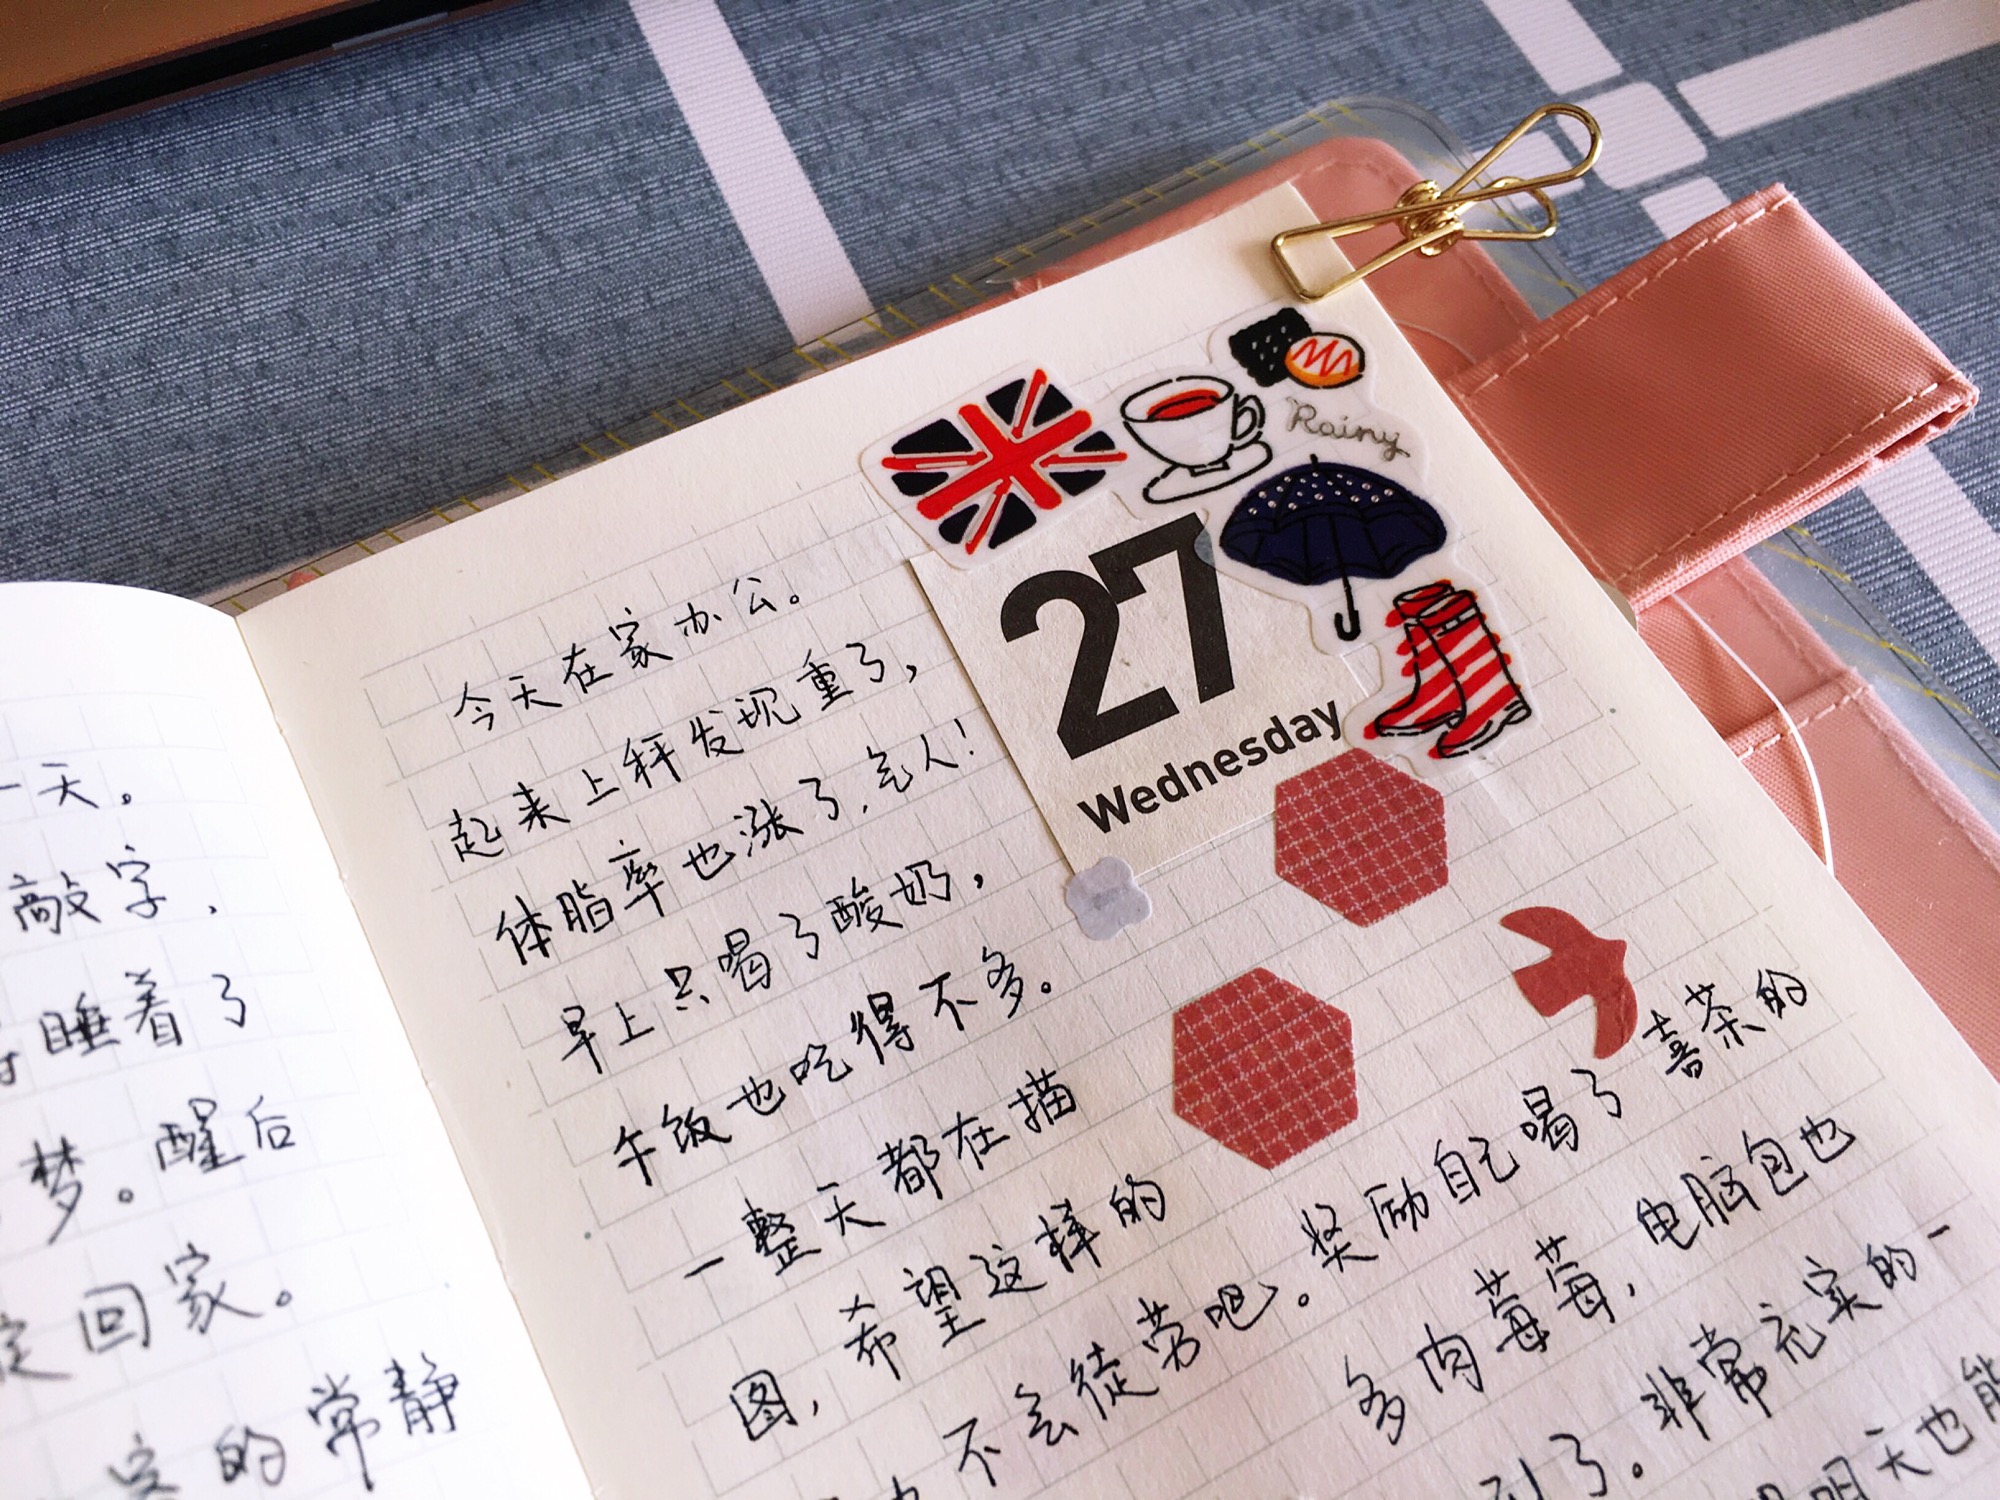 一天。
敲字，
睡着了
梦。醒后
回家。
的常静
Rainy
27
Wednesday
今天在家办公。
起来上秤发现重了，
体脂率也涨了，气人！
早上只喝了酸奶，
午饭也吃得不多。
一整天都在描
图，希望这样的
不会徒劳吧。奖励自己喝了喜茶的
多肉莓莓，电脑包也
到了。非常充实的一
明天也能